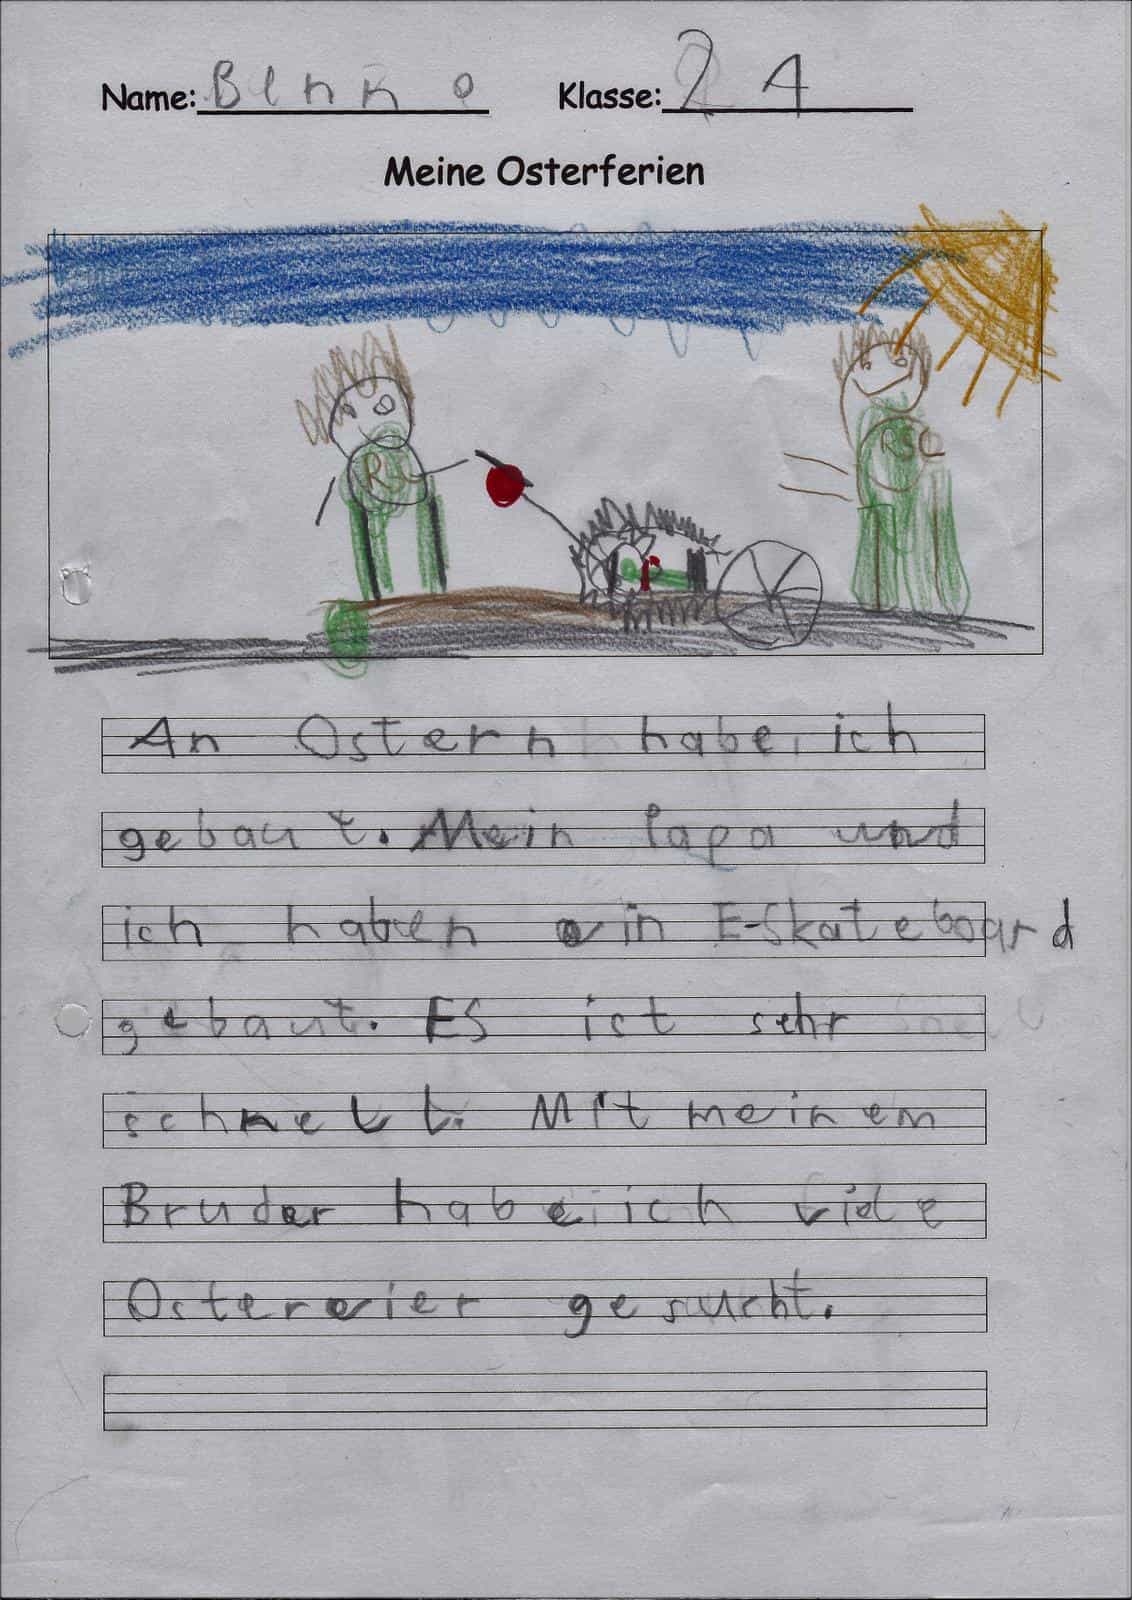 Name: Benno Klasse: 2A
Meine Osterferien
RSC
RSC
An Ostern habe ich
gebaut. Mein Papa und
ich haben ein E-Skateboard
gebaut. ES ist sehr
schnell. Mit meinem
Bruder habe ich viele
Ostereier gesucht.